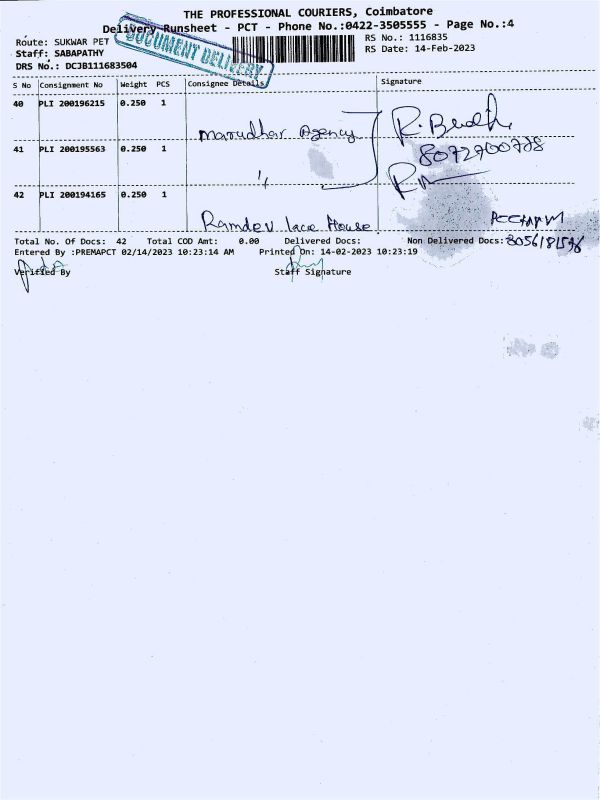 THE PROFESSIONAL COURIERS, Coimbatore
Delivery Runsheet - PCT - Phone No.:0422-3505555 - Page No.:4
DOCUMENT DELIVERY
Route: SUKWAR PET
RS No.: 1116835
Staff: SABAPATHY
RS Date: 14-Feb-2023
DRS No.: DCJB111683504
S No Consignment No Weight PCS Consignee Details Signature
40 PLI 200196215 0.250 1
Marudhar Agency
41 PLI 200195563 0.250 1
8072700778
42 PLI 200194165 0.250 1
Ramdev lace House
Total No. Of Docs: 42 Total COD Amt: 0.00 Delivered Docs: Non Delivered Docs:
Entered By :PREMAPCT 02/14/2023 10:23:14 AM Printed On: 14-02-2023 10:23:19
Verified By Staff Signature